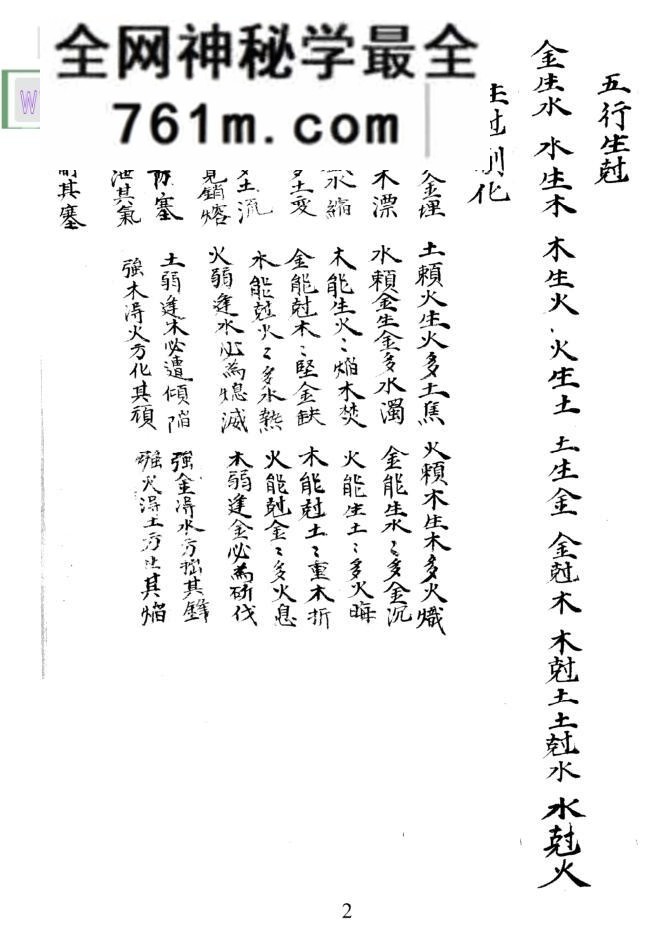 全网神秘学最全
761m.com
W
五行生尅
金生水 水生木 木生火 火生土 土生金 金尅木 木尅土 土尅水 水尅火
生尅制化
金埋 土賴火生火多土焦 火賴木生木多火熾
木漂 水賴金生金多水濁 金能生水〻多金沉
水縮 木能生火〻焰木焚 火能生土〻多火晦
土变 金能尅木〻堅金缺 木能尅土〻重木折
土流 水能尅火〻多水熱 火能尅金〻多火息
見銷熔 火弱逢水必為熄滅 木弱逢金必為斫伐
塞 土弱逢木必遭傾陷 強金得水方挫其鋒
泄其氣 強木得火方化其頑 強火得土方止其焰
其塞
2